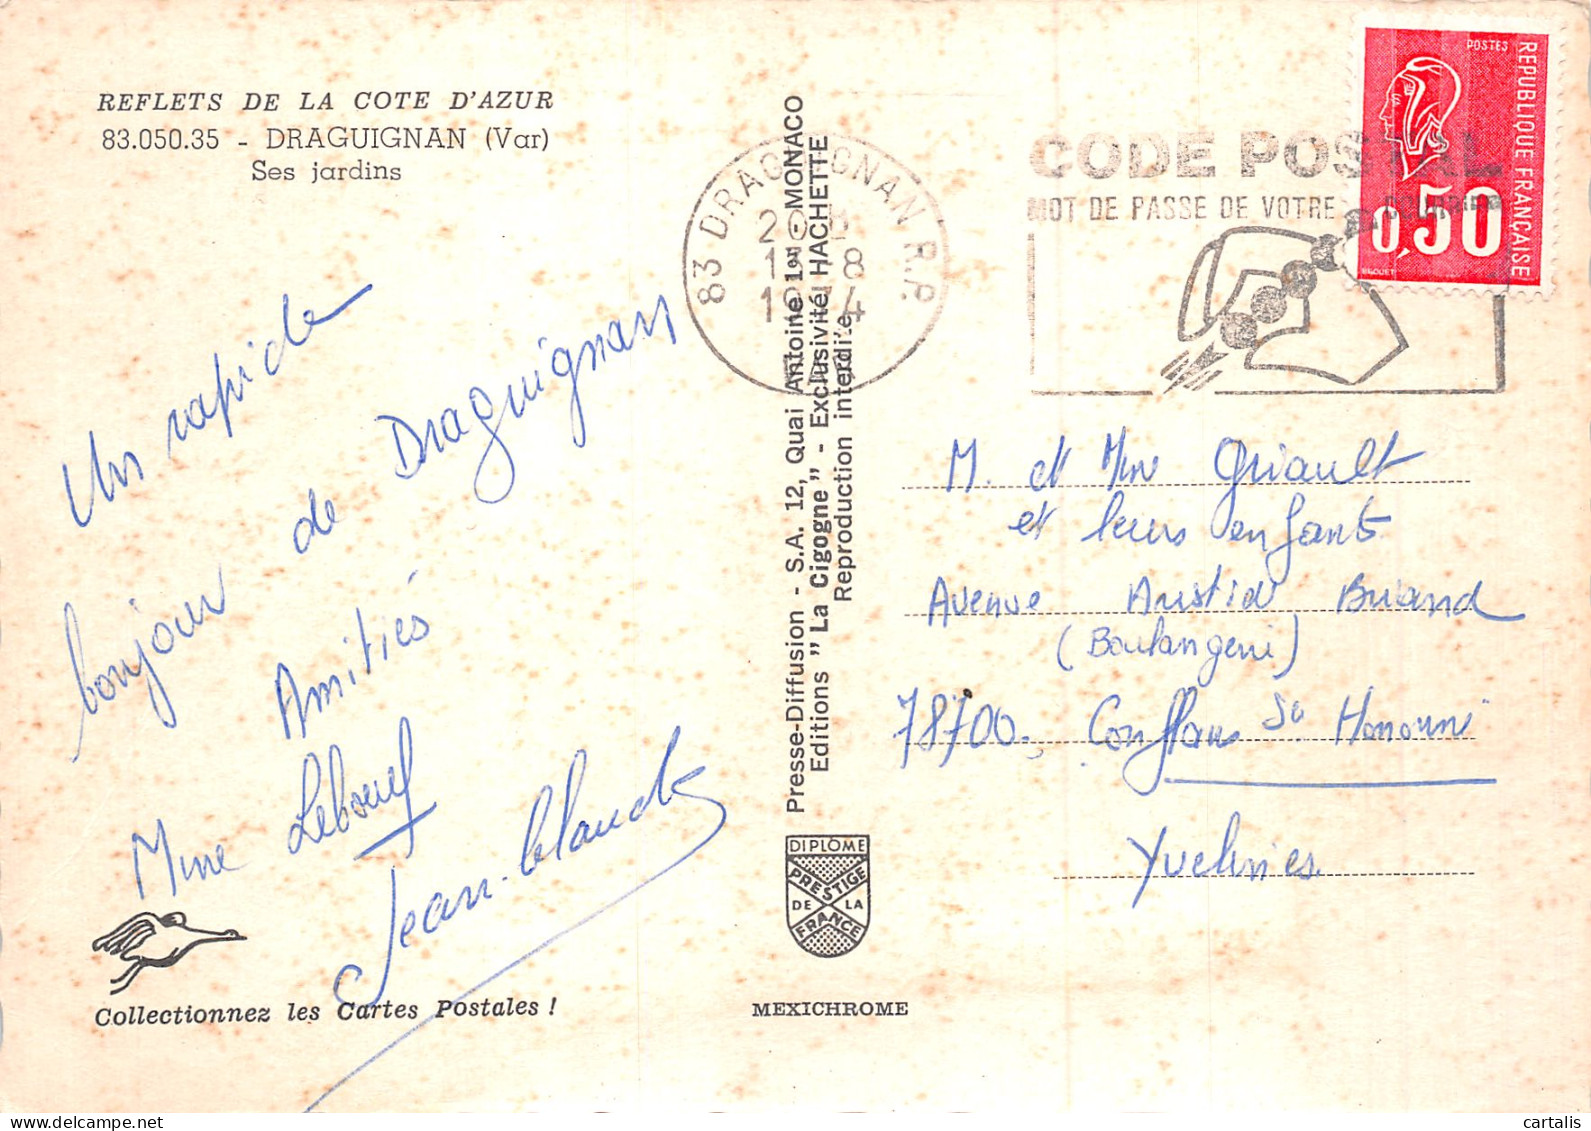 REFLETS DE LA COTE D'AZUR
83.050.35 - DRAGUIGNAN (Var)
Ses jardins
Un rapide
bonjour de Draguignan
Amitiés
Mme Leboeuf
Jean-Claude
Collectionnez les Cartes Postales !
Presse-Diffusion - S.A. 12, Quai Antoine 1er - MONACO
Editions "La Cigogne" - Exclusivité HACHETTE
Reproduction interdite
DIPLÔME
PRESTIGE
DE LA
FRANCE
MEXICHROME
83 DRAGUIGNAN R.P.
13-8
1974
CODE POSTAL
MOT DE PASSE DE VOTRE COURRIER
POSTES
REPUBLIQUE FRANÇAISE
0,50
BEQUET
M. et Mme Griault
et leurs enfants
Avenue Aristid Briand
(Boulangerie)
78700. Conflans Ste Honorine
Yvelines